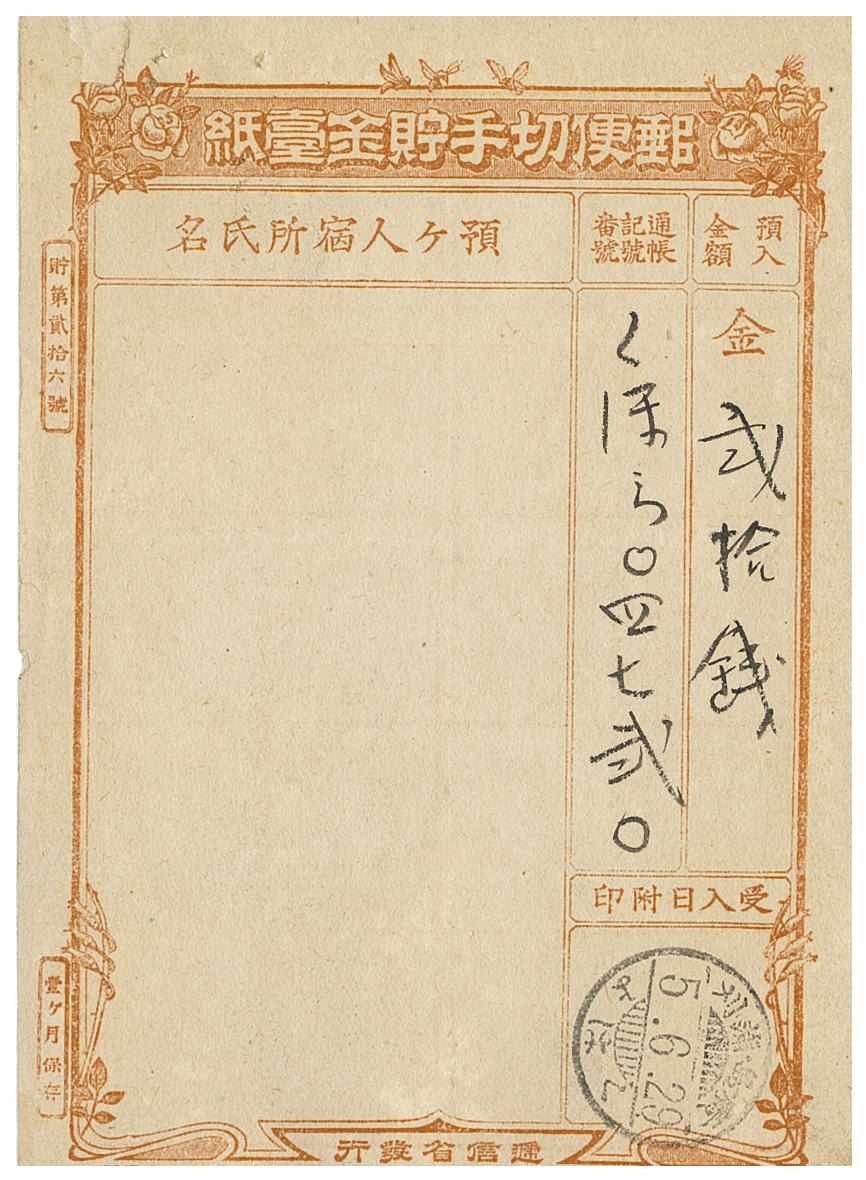 郵便切手貯金臺紙
預入金額
通帳記號番號
預ヶ人宿所氏名
金弐拾銭
く保う〇四七弐〇
受入日附印
5.6.29
貯第貳拾六號
壹ヶ月保存
遞信省發行